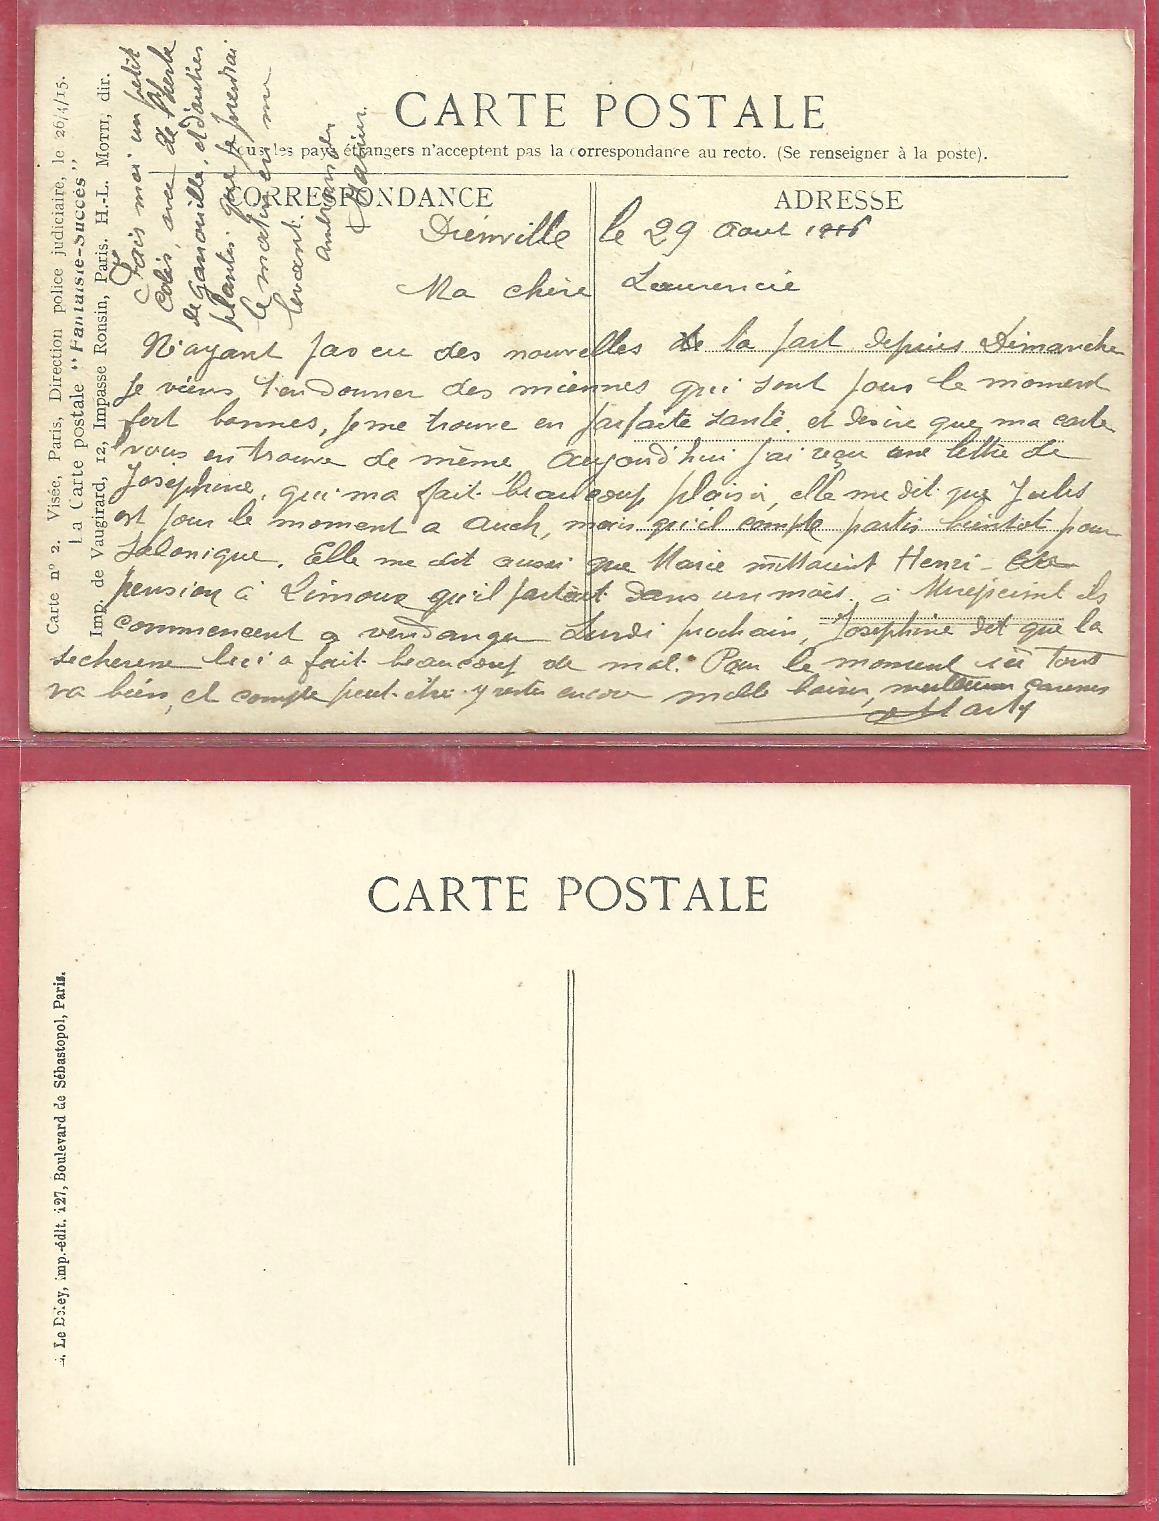 CARTE POSTALE
Tous les pays étrangers n'acceptent pas la correspondance au recto. (Se renseigner à la poste).
CORRESPONDANCE
ADRESSE
Carte n° 2. Visée, Paris, Direction police judiciaire, le 26/4/15.
La Carte postale "Fantaisie-Succès"
Imp. de Vaugirard, 12, Impasse Ronsin, Paris. H.-L. Motti, dir.
Dienville le 29 Aout 1916
Ma chère Laurencie
N'ayant pas eu des nouvelles de la part depuis Dimanche
je viens t'en donner des miennes qui sont pour le moment
fort bonnes, je me trouve en parfaite santé. et desire que ma carte
vous en trouve de même. Aujourd'hui j'ai reçu une lettre de
Joséphine, qui ma fait beaucoup plaisir, elle me dit que Jules
est pour le moment a Auch, mais qu'il compte partir bientot pour
Salonique. Elle me dit aussi que Marie mettaint Henri
pension à Limoux qu'il partait dans un mois. à Mirepeisset ils
commencent a vendanger Lundi prochain, Josephine dit que la
secheresse leci a fait beaucoup de mal. Pour le moment ici tout
va bien, et compte peut-être y rester encore mille baisers, meilleures caresses
Marty
Fais moi un petit
Colis, avec de l'herbe
de ganouille, et d'autres
plantes que je prendrai
le matin en me
levant.
CARTE POSTALE
Le Deley, imp.-édit. 127, Boulevard de Sébastopol, Paris.